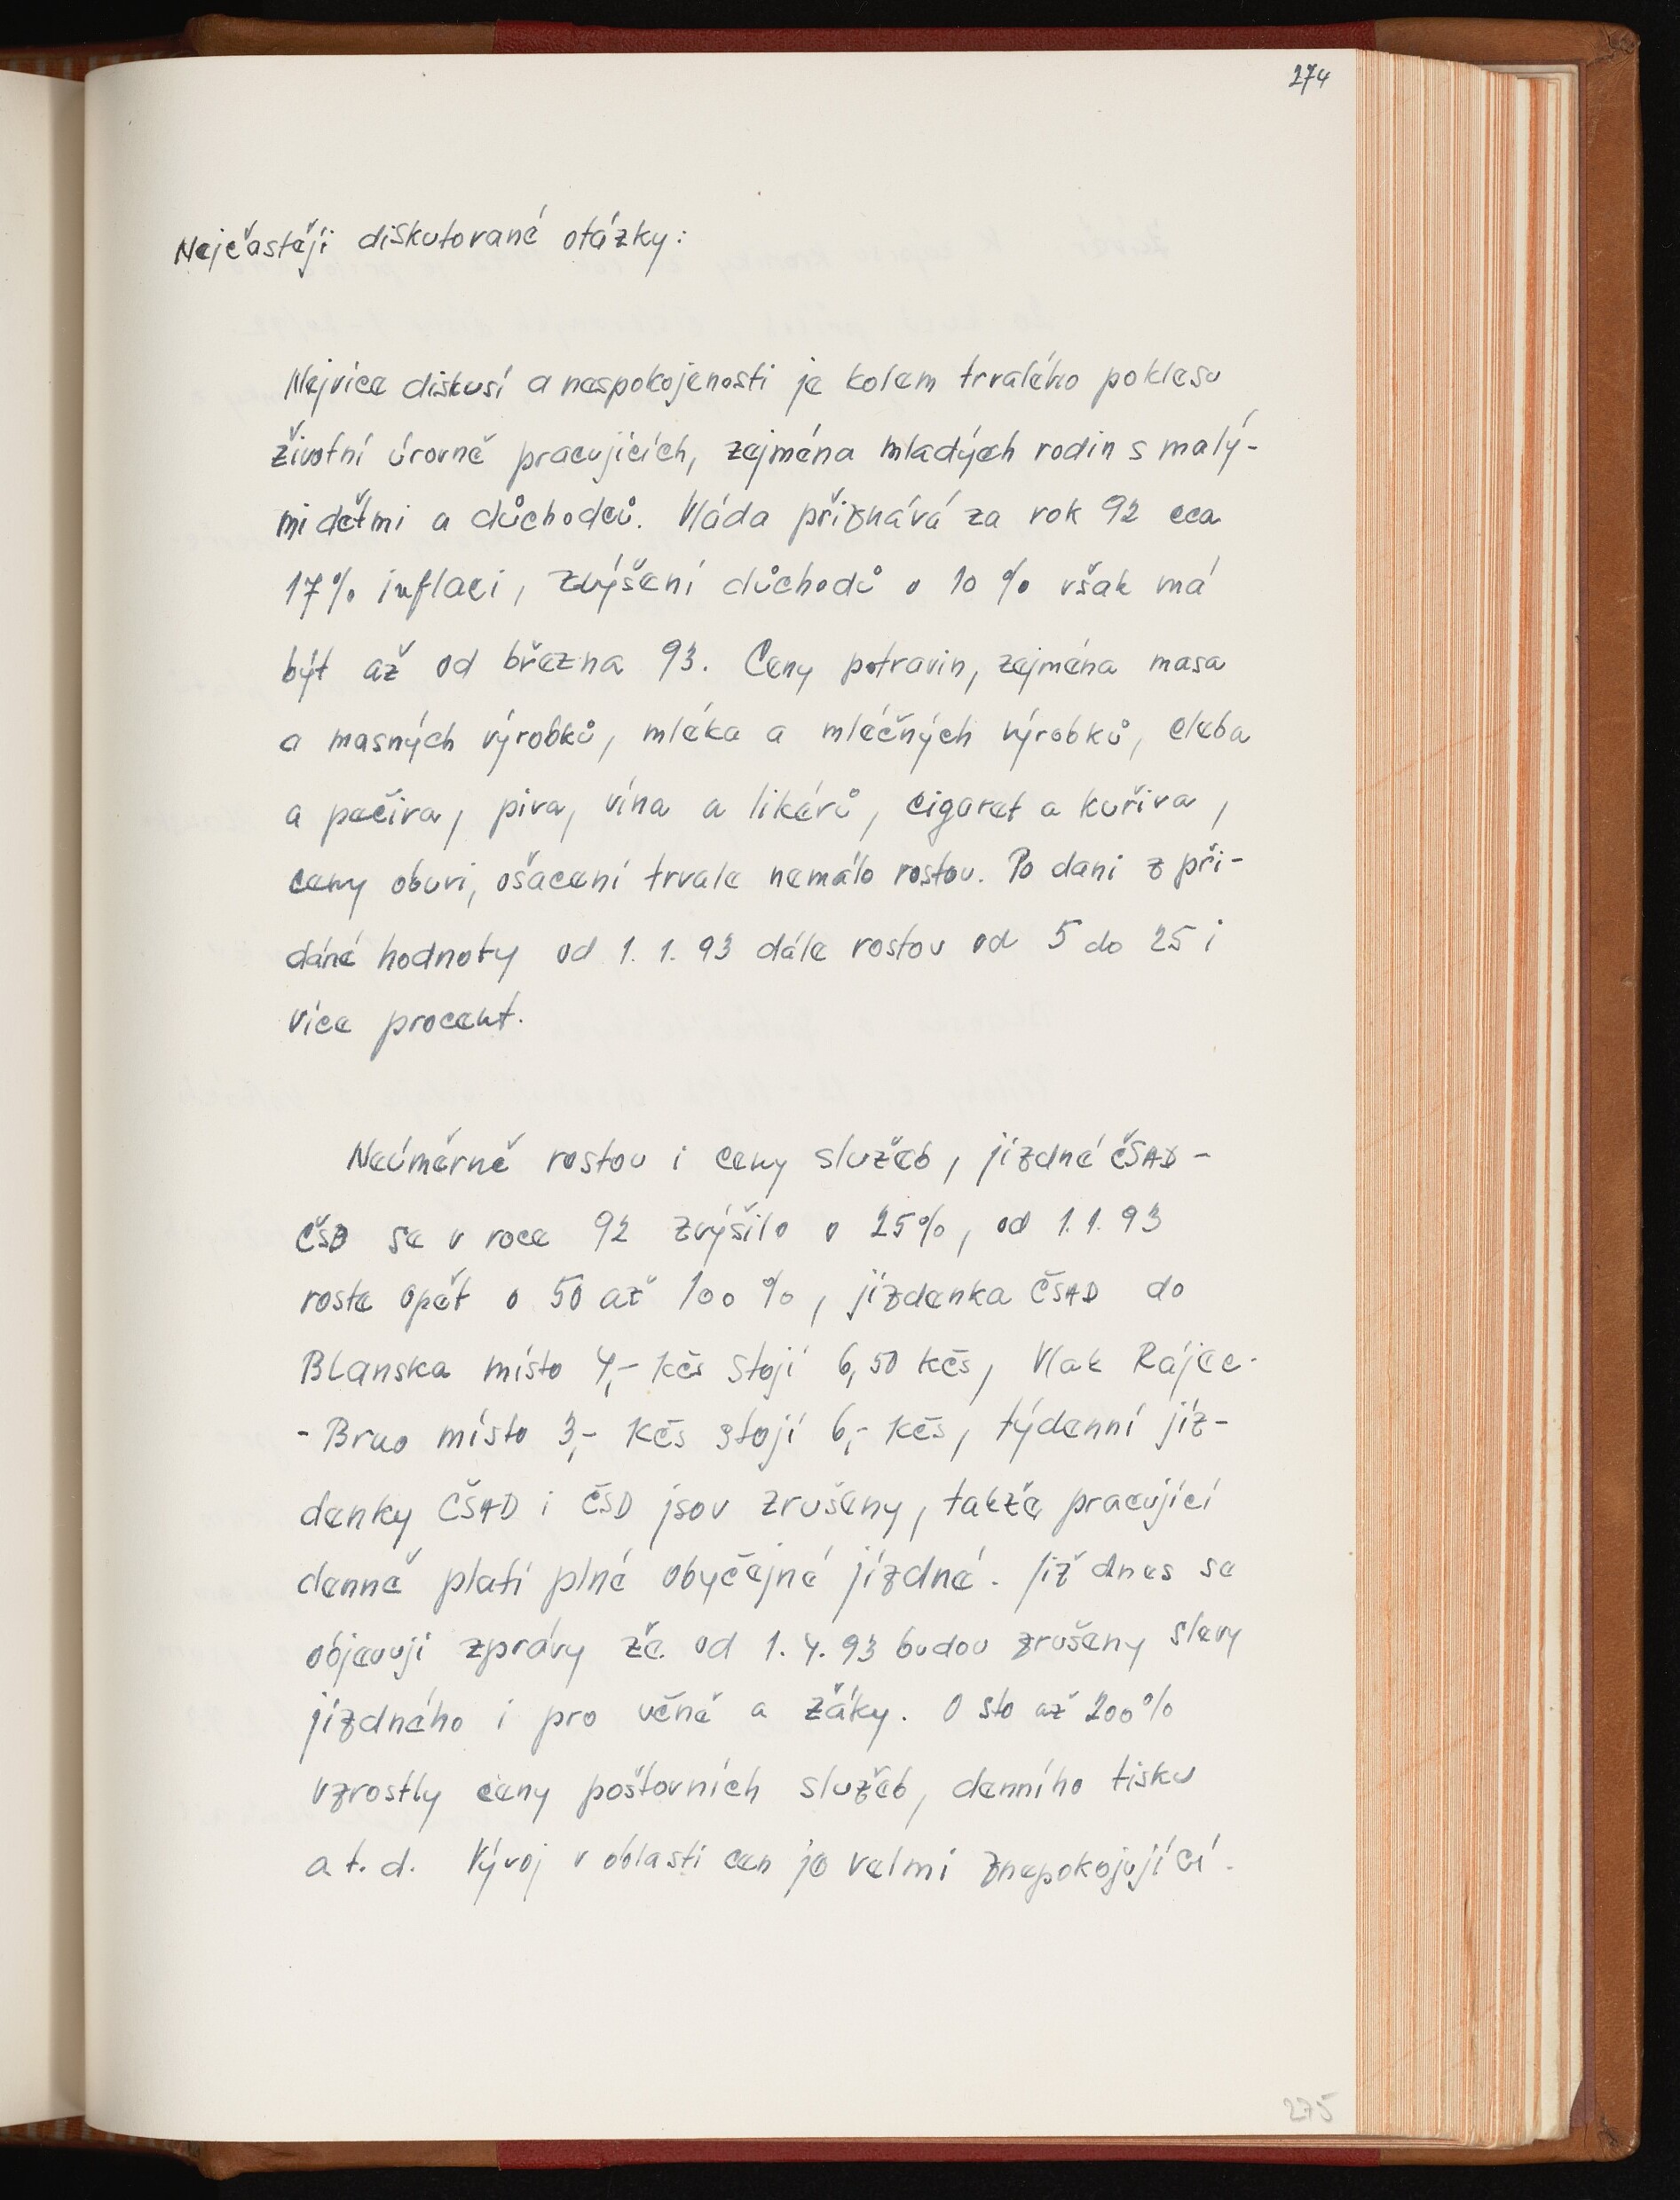 274
Nejčastěji diskutované otázky:
Nejvíce diskusí a nespokojenosti je kolem trvalého poklesu
životní úrovně pracujících, zejména mladých rodin s malý-
mi dětmi a důchodců. Vláda přiznává za rok 92 cca
17% inflaci, zvýšení důchodů o 10 % však má
být až od března 93. Ceny potravin, zejména masa
a masných výrobků, mléka a mléčných výrobků, cleba
a pečiva, piva, vína a likérů, cigaret a kuřiva,
ceny obuvi, ošacení trvale nemálo rostou. Po dani z při-
dáné hodnoty od 1. 1. 93 dále rostou od 5 do 25 i
více procent.
Neúměrně rostou i ceny služeb, jízdné ČSAD -
ČSD se v roce 92 zvýšilo o 25%, od 1.1.93
roste opět o 50 až 100 %, jízdenka ČSAD do
Blanska místo 4,- Kčs stojí 6,50 kčs, Vlak Rájec-
- Brno místo 3,- Kčs stojí 6,- Kčs, týdenní jíz-
denky ČSAD i ČSD jsou zrušeny, takže pracující
denně platí plné obyčejné jízdné. Již dnes se
objevuji zprávy že od 1. 4. 93 budou zrušeny slevy
jízdného i pro učně a žáky. O sto až 200%
vzrostly ceny poštovních služeb, denního tisku
a t. d. Vývoj v oblasti cen je velmi znepokojující.
275